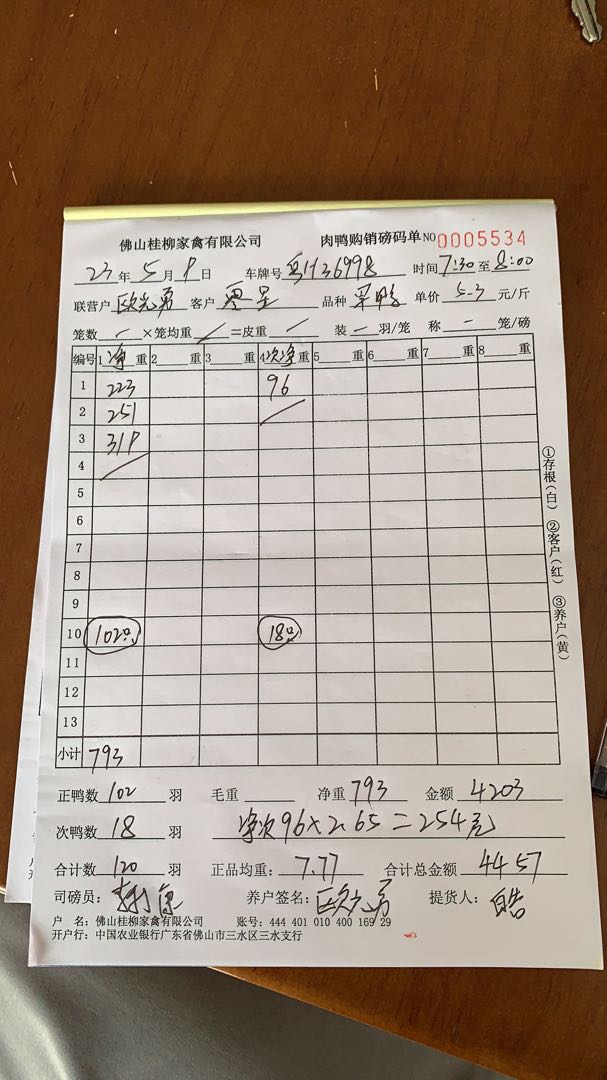 佛山桂柳家禽有限公司 肉鸭购销磅码单 NO 0005534
23 年 5 月 8 日 车牌号 粤H36998 时间 7:30 至 8:00
联营户 欧光勇 客户 零星 品种 单价 5.3 元/斤
笼数 一 ×笼均重 ／ =皮重 ／ 装 一 羽/笼 称 一 笼/磅
编号 1 净 重 2 重 3 重 4 次净 重 5 重 6 重 7 重 8 重
1 223 96
2 251 ／
3 318
4 ／
5
6
7
8
9
10 102只 18只
11
12
13
小计 793
①存根(白) ②客户(红) ③养户(黄)
正鸭数 102 羽 毛重 净重 793 金额 4203
次鸭数 18 羽 净次96×2.65=254元
合计数 120 羽 正品均重: 7.77 合计总金额 4457
司磅员: 养户签名: 欧光勇 提货人: 皓
户 名: 佛山桂柳家禽有限公司 账号: 444 401 010 400 169 29
开户行: 中国农业银行广东省佛山市三水区三水支行